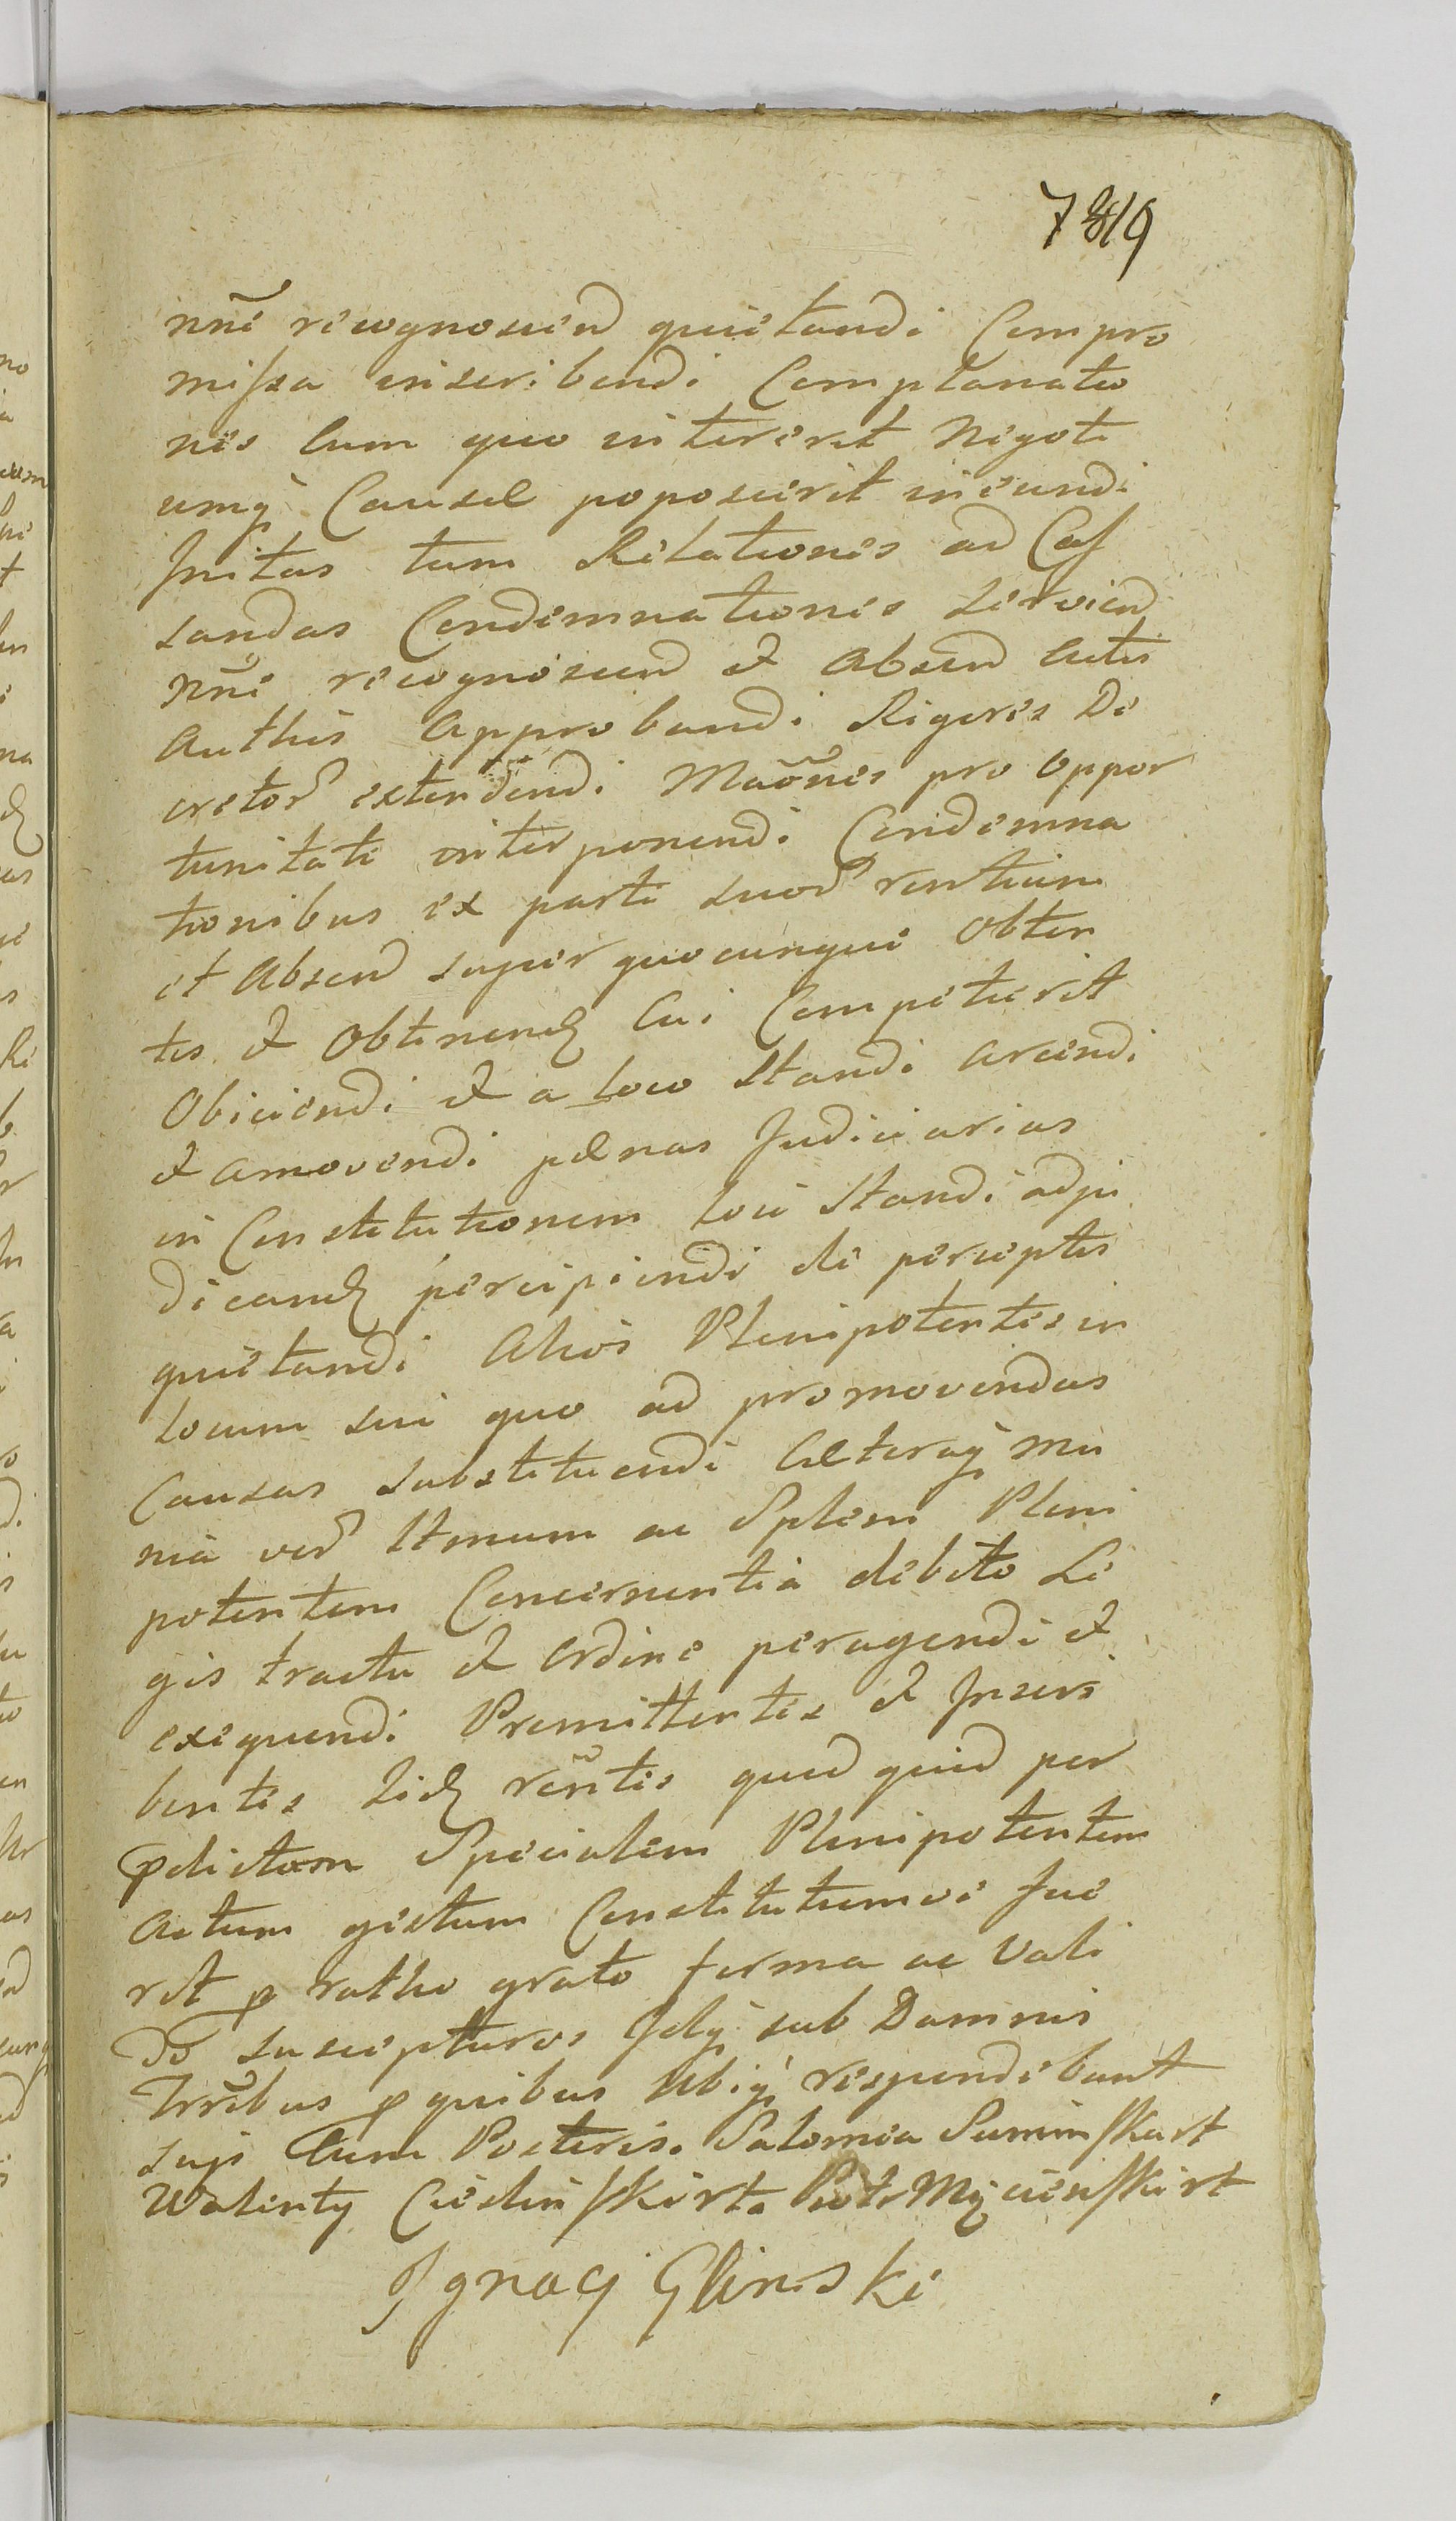 7819
nñe recognoscend quietandi Compro
missa inscribendi Complanatio
nes cum quo intererit Negoti
umq Causae poposcerit ineundi
Initas tum Relationes ad Cas
sandas Condemnationes servien
nñe recognoscend & absend Actis
Authis approbandi Rigores De
cretor extendendi Maones pro oppor
tunitate interponendi Condemna
tionibus ex parte suor rentium
et absend super quocunque obten
tis & obtinend Cui Competierit
Obiiciendi & a loco Standi arcendi
& amovendi paenas Judiciarias
in Constitutionem loci Standi adju
dicand percipiendi de perceptis
quietandi Alios Plenipotentes in
locum sui quo ad promovendas
Causas substituendi Caeteraq mu
nia ver Itmum ac Splem Pleni
potentem Concernentia debito Le
gis tractu & ordine peragendi &
exequendi Promittentes & Inscri
bentes Iid reñtes quod quid per
pdictum Specialem Plenipotentem
Actum gestum Constitutumve fue
rit p ratho grato firma ac vali
do suscepturos Idq sub Damnis
Trrẽbus p quibus Ubiq respondebunt
suis cum Posteris. Salomea Suminskart
Walenty Cieslinskirt. Piotr Mycienskirt
Jgnacy Glinski